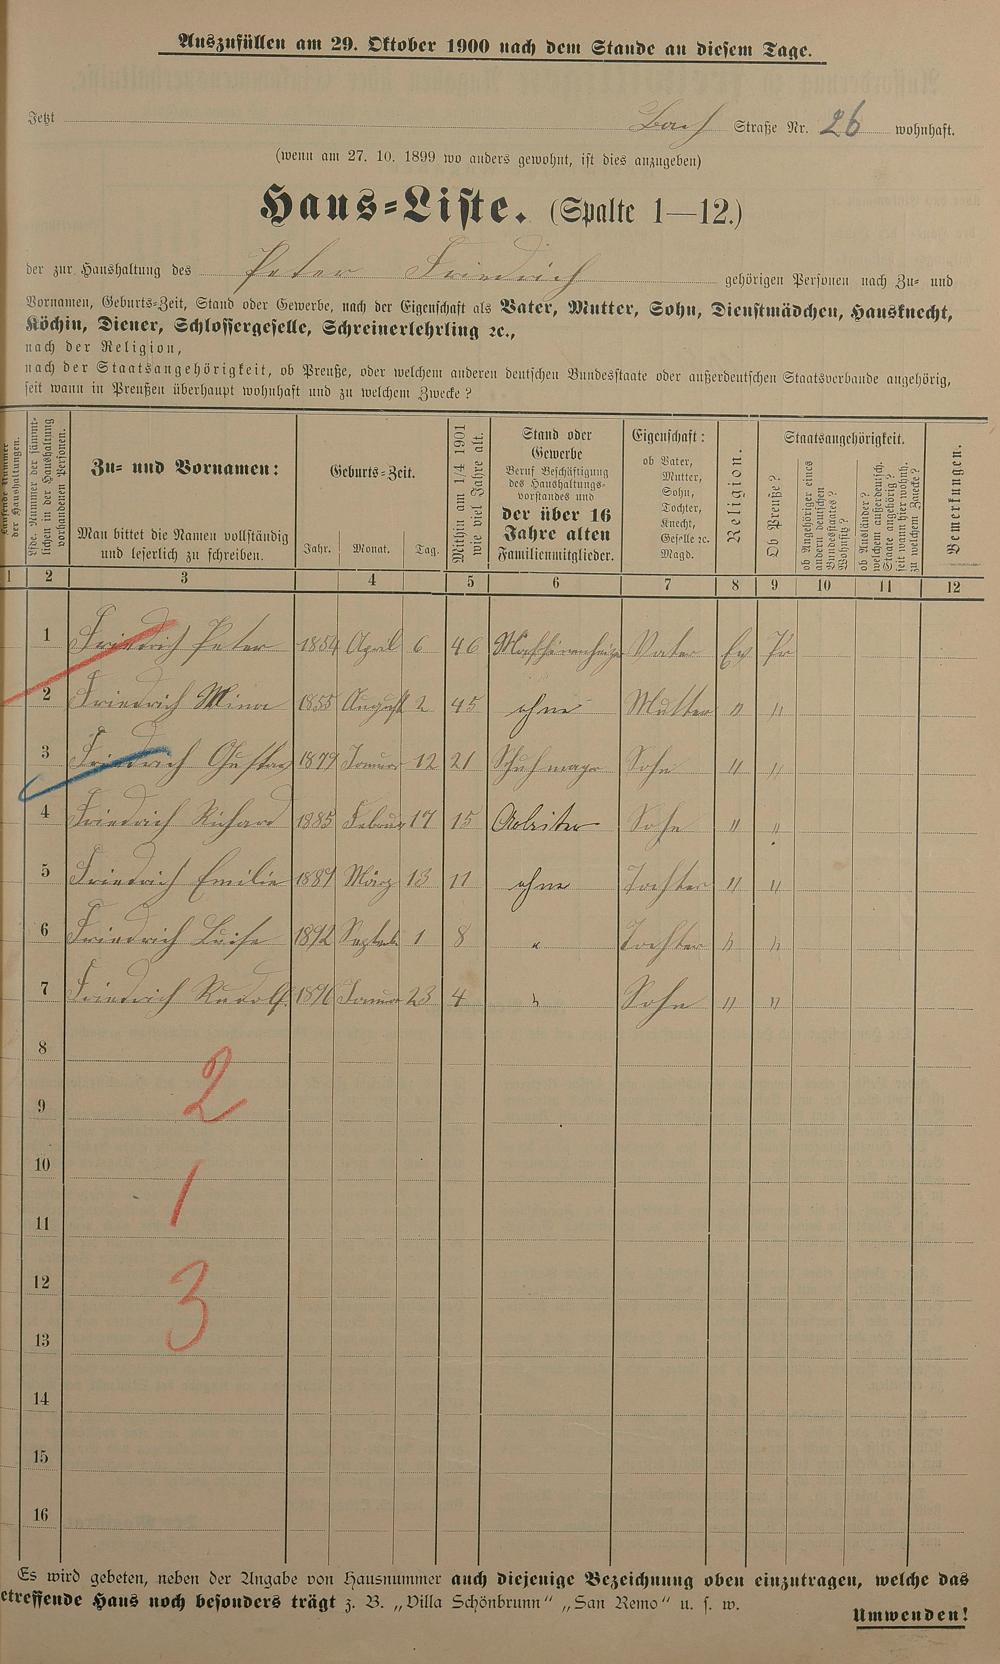 Auszufüllen am 29. Oktober 1900 nach dem Stande an diesem Tage.
Jetzt Bach Straße Nr. 26 wohnhaft.
(wenn am 27. 10. 1899 wo anders gewohnt, ist dies anzugeben)
Haus-Liste. (Spalte 1—12.)
der zur Haushaltung des Peter Friedrich gehörigen Personen nach Zu- und
Vornamen, Geburts-Zeit, Stand oder Gewerbe, nach der Eigenschaft als Vater, Mutter, Sohn, Dienstmädchen, Hausknecht,
Köchin, Diener, Schlossergeselle, Schreinerlehrling ꝛc.,
nach der Religion,
nach der Staatsangehörigkeit, ob Preuße, oder welchem anderen deutschen Bundesstaate oder außerdeutschen Staatsverbande angehörig,
seit wann in Preußen überhaupt wohnhaft und zu welchem Zwecke?
Laufende Nummer
der Haushaltungen.
Lfde. Nummer der sämmt-
lichen in der Haushaltung
vorhandenen Personen.
Zu- und Vornamen:
Man bittet die Namen vollständig
und leserlich zu schreiben.
Geburts-Zeit.
Jahr. Monat. Tag.
Mithin am 1/4 1901
wie viel Jahre alt.
Stand oder
Gewerbe
Beruf Beschäftigung
des Haushaltungs-
vorstandes und
der über 16
Jahre alten
Familienmitglieder.
Eigenschaft:
ob Vater,
Mutter,
Sohn,
Tochter,
Knecht,
Geselle ꝛc.
Magd.
Religion.
Staatsangehörigkeit.
Ob Preuße?
ob Angehöriger eines
andern deutschen
Bundesstaates?
Wohnsitz?
ob Ausländer?
welchem außerdeutsch.
Staate angehörig?
seit wann hier wohnh.
zu welchem Zwecke?
Bemerkungen.
1 2 3 4 5 6 7 8 9 10 11 12
1 Friedrich Peter 1854 April 6 46 Maschinenheizer Vater Ev Pr
2 Friedrich Mina 1855 August 2 45 ohne Mutter " "
3 Friedrich Gustav 1879 Januar 12 21 Sohn " "
4 Friedrich Richard 1885 Februar 17 15 Arbeiter Sohn " "
5 Friedrich Emilie 1889 März 13 11 ohne Tochter " "
6 Friedrich Luise 1892 Septemb 1 8 " Tochter " "
7 Friedrich Rudolf 1896 Januar 23 4 " Sohn " "
8
2
9
10
1
11
12
3
13
14
15
16
Es wird gebeten, neben der Angabe von Hausnummer auch diejenige Bezeichnung oben einzutragen, welche das
etreffende Haus noch besonders trägt z. B. „Villa Schönbrunn" „San Remo" u. s. w.
Umwenden!